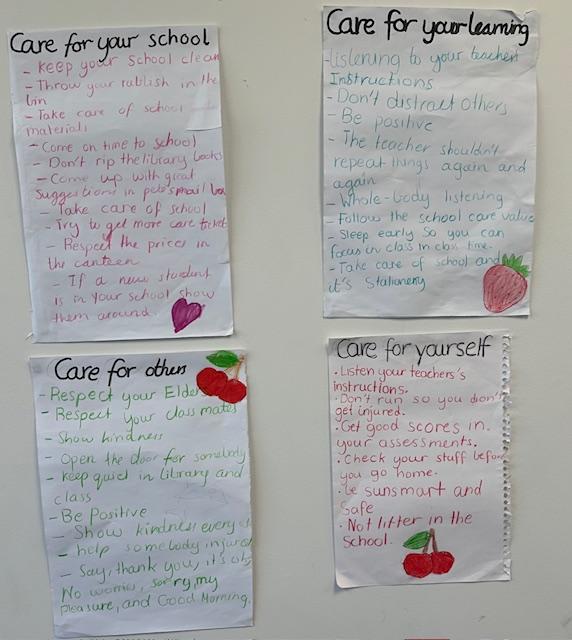 Care for your school
- Keep your school clean
- Throw your rubbish in the
bin
- Take care of school
materials
- Come on time to school
- Don't rip the library books
- Come up with great
suggestions in pete's mail box
- Take care of school
- Try to get more care ticket
- Respect the prices in
the canteen
- If a new student
is in your school show
them around.
Care for your learning
- listening to your teachers
Instructions
- Don't distract others
- Be positive
- The teacher shouldn't
repeat things again and
again
- Whole-body listening
- Follow the school care value
- Sleep early so you can
focus in class in class time.
- Take care of school and
it's Stationery
Care for others
- Respect your Elders
- Respect your class mates
- Show kindness
- Open the door for somebody
- Keep quiet in library and
class
- Be Positive
- Show kindness every
- help somebody injured
- Say, thank you, it's ok,
No worries, sorry, my
pleasure, and Good Morning.
Care for yourself
• Listen your teachers's
instructions.
• Don't run so you don't
get injured.
• Get good scores in
your assessments.
• Check your stuff before
you go home.
• Be sunsmart and
Safe
• Not litter in the
School.